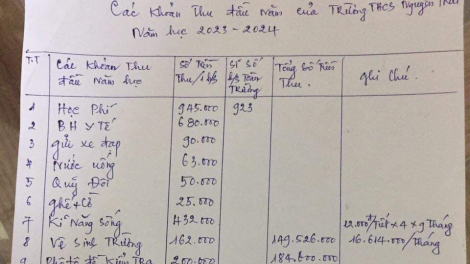 Các Khoản Thu đầu năm của Trường THCS Nguyễn Trãi
Năm học 2023 - 2024
T.T Các Khoản Thu đầu năm học Số tiền Thu/1 h/s Sĩ số h/s toàn Trường Tổng số tiền Thu. Ghi chú.
1 Học Phí 945.000 923
2 BH Y Tế 680.000
3 Gửi xe đạp 90.000
4 Nước uống 63.000
5 Quỹ Đội 50.000
6 Ghế + Cờ 25.000
7 Kĩ Năng Sống 432.000 12.000đ/Tiết x 4 x 9 Tháng
8 Vệ Sinh Trường 162.000 149.526.000 16.614.000/tháng
9 Phô tô đề Kiểm Tra 200.000 184.600.000